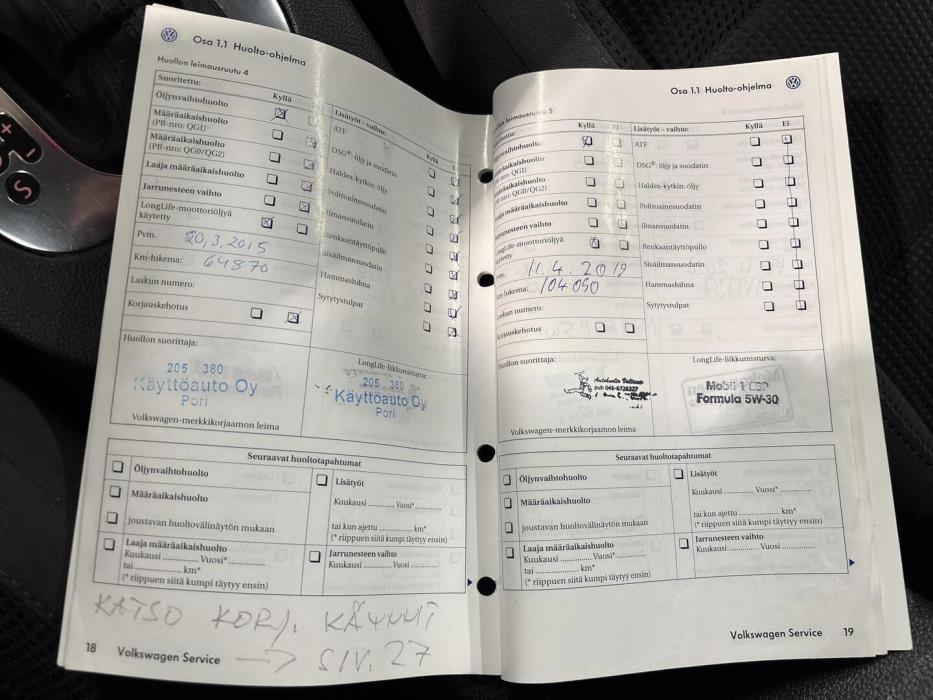 Osa 1.1 Huolto-ohjelma
Huollon leimausruutu 4
Suoritettu:
Kyllä
Öljynvaihtohuolto
Määräaikaishuolto
(PR-nro: QG1)
Määräaikaishuolto
(PR-nro: QG0/QG2)
Laaja määräaikaishuolto
Jarrunesteen vaihto
LongLife-moottoriöljyä
käytetty
Pvm. 20.3.2015
Km-lukema: 64870
Laskun numero:
Korjauskehotus
Lisätyöt – vaihto:
Kyllä
ATF
DSG®: öljy ja suodatin
Haldex-kytkin: öljy
Polttoainesuodatin
Ilmansuodatin
Renkaantäyttöpullo
Sisäilmansuodatin
Hammashihna
Sytytystulpat
Huollon suorittaja:
205 380
Käyttöauto Oy
Pori
Volkswagen-merkkikorjaamon leima
LongLife-liikkumisturva:
205 380
Käyttöauto Oy
Pori
Seuraavat huoltotapahtumat
Öljynvaihtohuolto
Määräaikaishuolto
joustavan huoltovälinäytön mukaan
Laaja määräaikaishuolto
Kuukausi ............ Vuosi* ............
tai .................. km*
(* riippuen siitä kumpi täytyy ensin)
Lisätyöt
Kuukausi ............ Vuosi* ............
tai kun ajettu .................. km*
(* riippuen siitä kumpi täytyy ensin)
Jarrunesteen vaihto
Kuukausi ............ Vuosi ............
KATSO KORJ. KÄYNNIT
→ SIV. 27
18 Volkswagen Service
Osa 1.1 Huolto-ohjelma
leimausruutu 5
Kyllä Ei
Määräaikaishuolto
Jarrunesteen vaihto
LongLife-moottoriöljyä
11.4.2019
104050
Laskun numero:
Korjauskehotus
Lisätyöt – vaihto:
Kyllä Ei
ATF
DSG®: öljy ja suodatin
Haldex-kytkin: öljy
Polttoainesuodatin
Ilmansuodatin
Renkaantäyttöpullo
Sisäilmansuodatin
Hammashihna
Sytytystulpat
Huollon suorittaja:
Volkswagen-merkkikorjaamon leima
LongLife-liikkumisturva:
Mobil 1 ESP
Formula 5W-30
Seuraavat huoltotapahtumat
Öljynvaihtohuolto
Määräaikaishuolto
joustavan huoltovälinäytön mukaan
Laaja määräaikaishuolto
Kuukausi ............ Vuosi* ............
tai .................. km*
(* riippuen siitä kumpi täytyy ensin)
Lisätyöt
Kuukausi ............ Vuosi* ............
tai kun ajettu .................. km*
(* riippuen siitä kumpi täytyy ensin)
Jarrunesteen vaihto
Kuukausi ............ Vuosi ............
Volkswagen Service 19